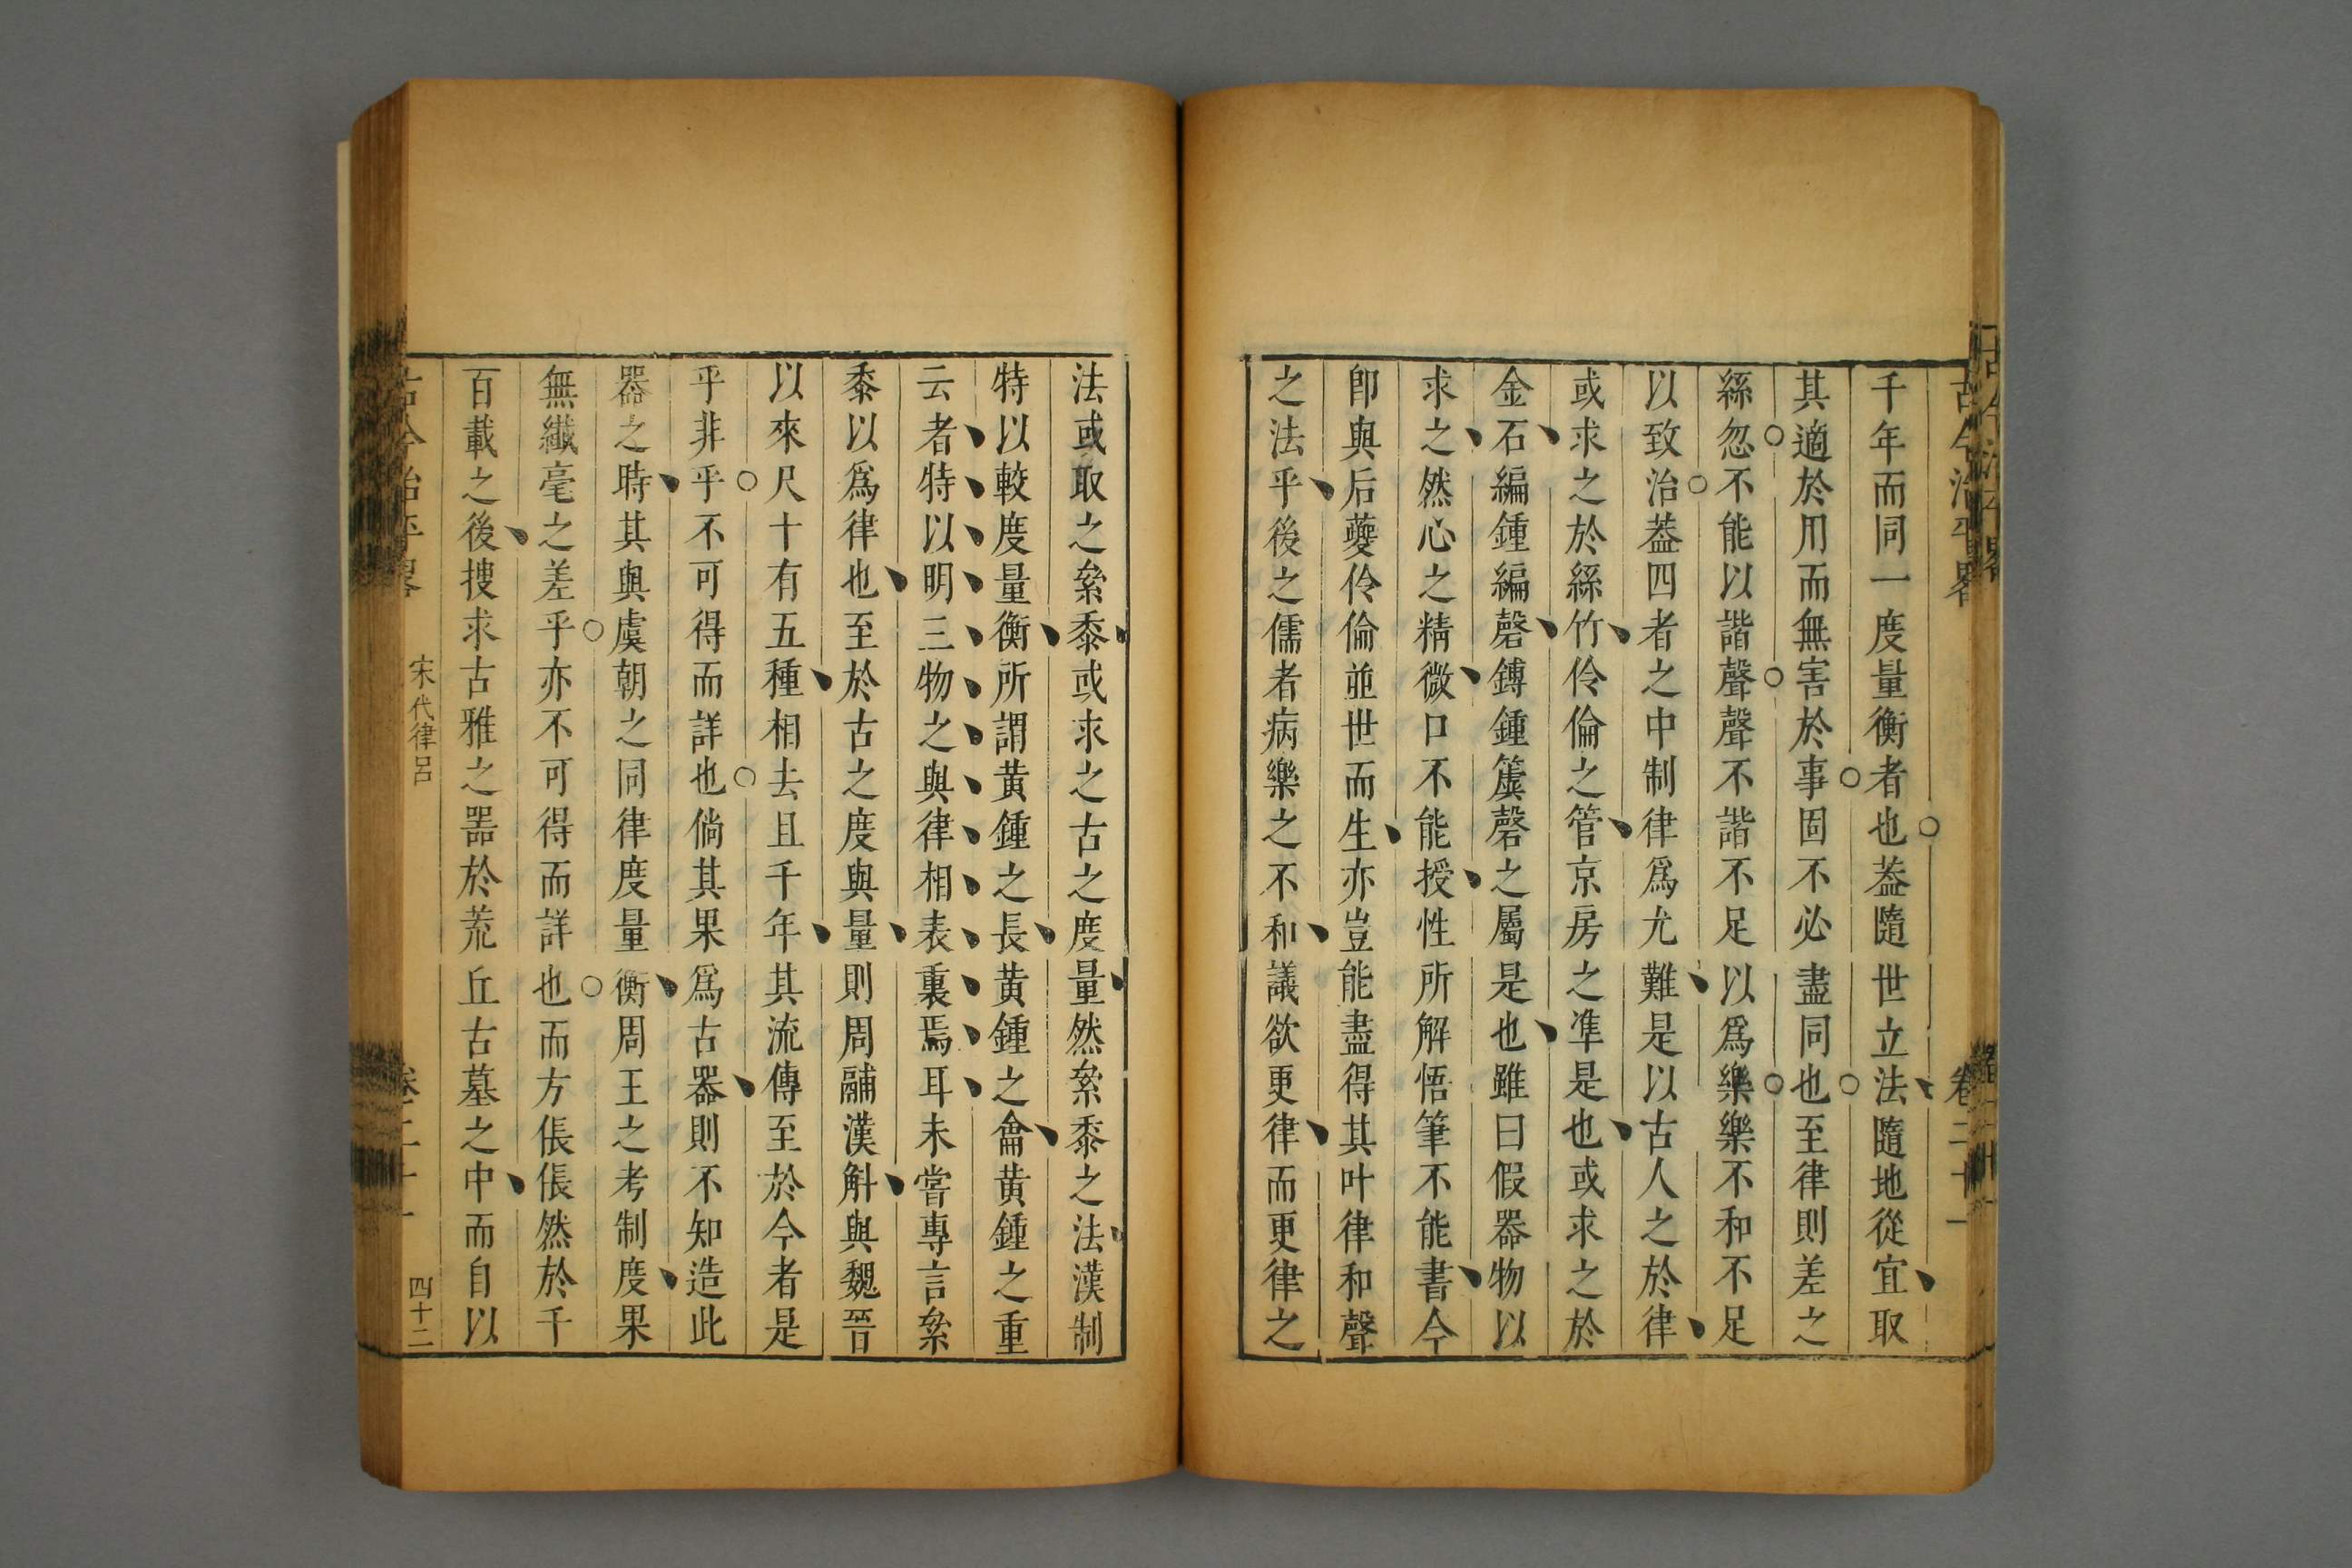 古今治平畧
卷二十一
千年而同一度量衡者也葢隨世立法隨地從宜取
其適於用而無害於事固不必盡同也至律則差之
絲忽不能以諧聲聲不諧不足以爲樂樂不和不足
以致治葢四者之中制律爲尤難是以古人之於律
或求之於絲竹伶倫之管京房之準是也或求之於
金石編鍾編磬鎛鍾簴磬之屬是也雖曰假器物以
求之然心之精微口不能授性所解悟筆不能書今
卽與后夔伶倫並世而生亦豈能盡得其叶律和聲
之法乎後之儒者病樂之不和議欲更律而更律之
法或取之絫黍或求之古之度量然絫黍之法漢制
特以較度量衡所謂黃鍾之長黃鍾之龠黃鍾之重
云者特以明三物之與律相表裏焉耳未嘗專言絫
黍以爲律也至於古之度與量則周鬴漢斛與魏晉
以來尺十有五種相去且千年其流傳至於今者是
乎非乎不可得而詳也倘其果爲古器則不知造此
器之時其與虞朝之同律度量衡周王之考制度果
無纖毫之差乎亦不可得而詳也而方倀倀然於千
百載之後搜求古雅之器於荒丘古墓之中而自以
古今治平畧
宋代律呂
卷二十一
四十二